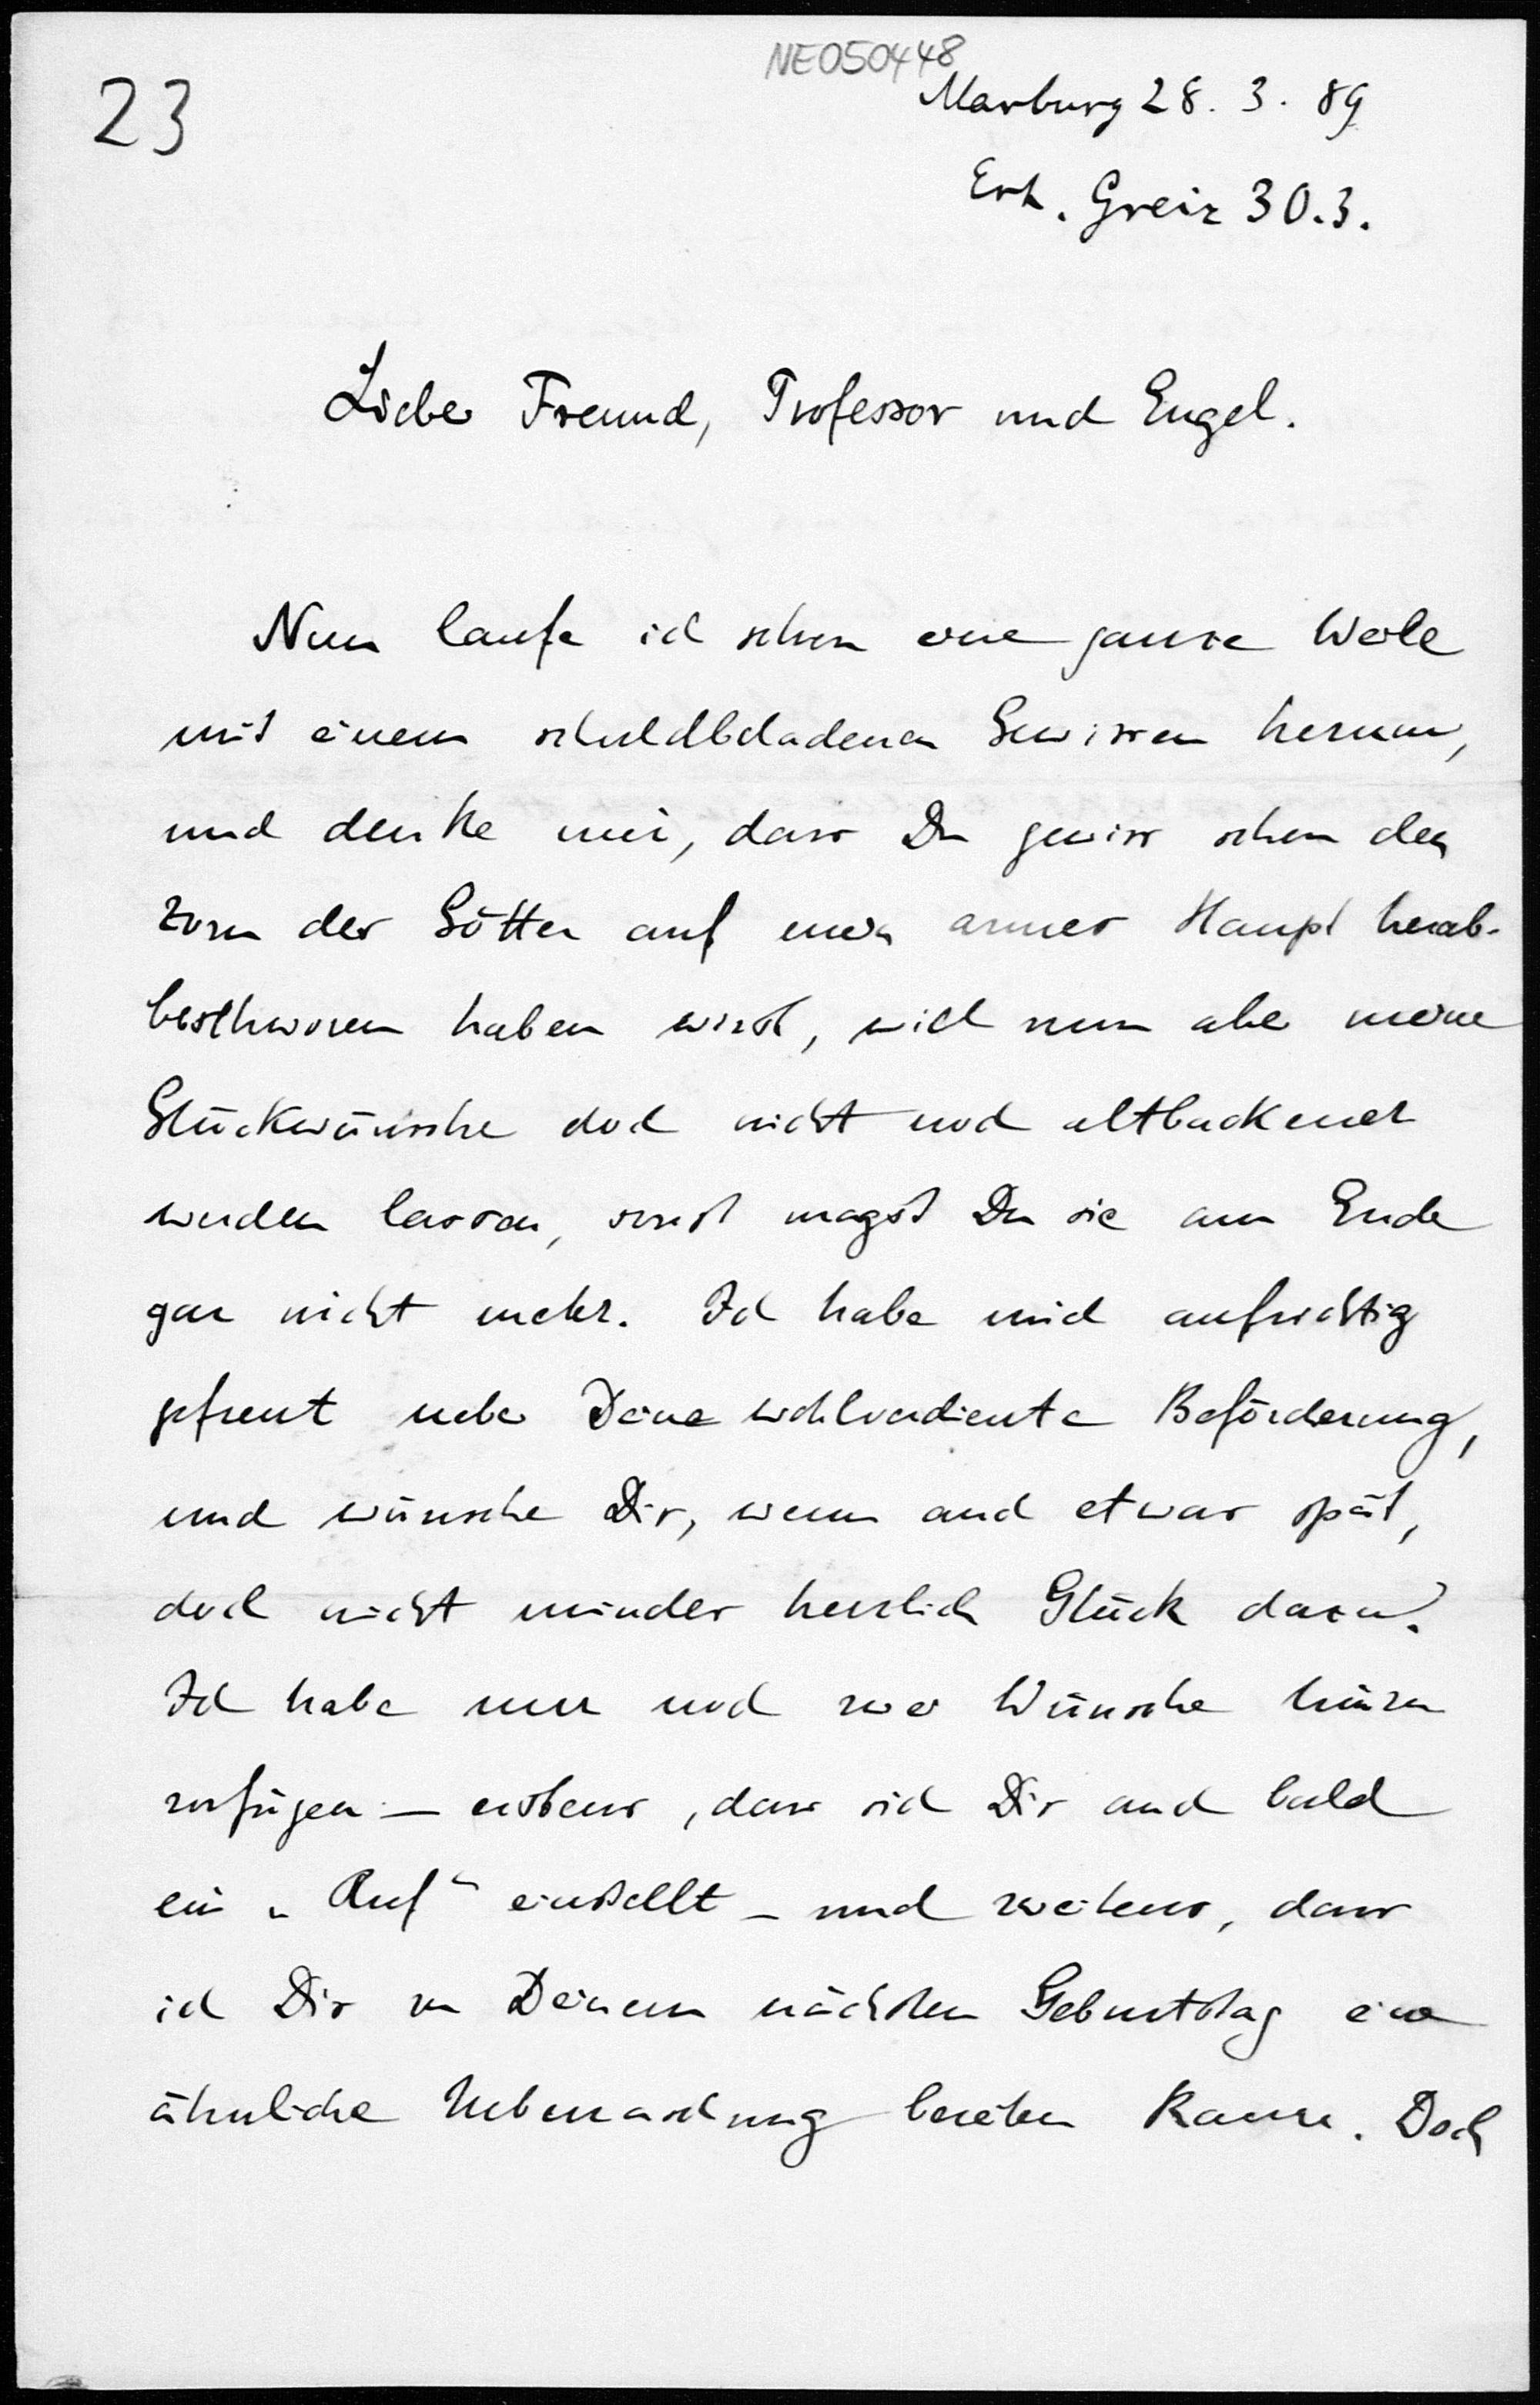 NE050448
23
Marburg 28. 3. 89
Erh. Greiz 30.3.
Lieber Freund, Professor und Engel.
Nun laufe ich schon eine ganze Weile
mit einem schuldbeladenen Gewissen herum,
und denke mir, dass Du gewiss schon den
Zorn der Götter auf mein armes Haupt herab-
beschworen haben wirst, will nun aber meine
Glückwünsche doch nicht noch altbackener
werden lassen, sonst magst Du sie am Ende
gar nicht mehr. Ich habe mich aufrichtig
gefreut ueber Deine wohlverdiente Beförderung,
und wünsche Dir, wenn auch etwas spät,
doch nicht minder herzlich Glück dazu.
Ich habe nur noch zwei Wünsche hinzu
zufügen – erstens, dass sich Dir auch bald
ein „Ruf“ einstellt – und zweitens, dass
ich Dir zu Deinem nächsten Geburtstag eine
ähnliche Ueberraschung bereiten kann. Doch